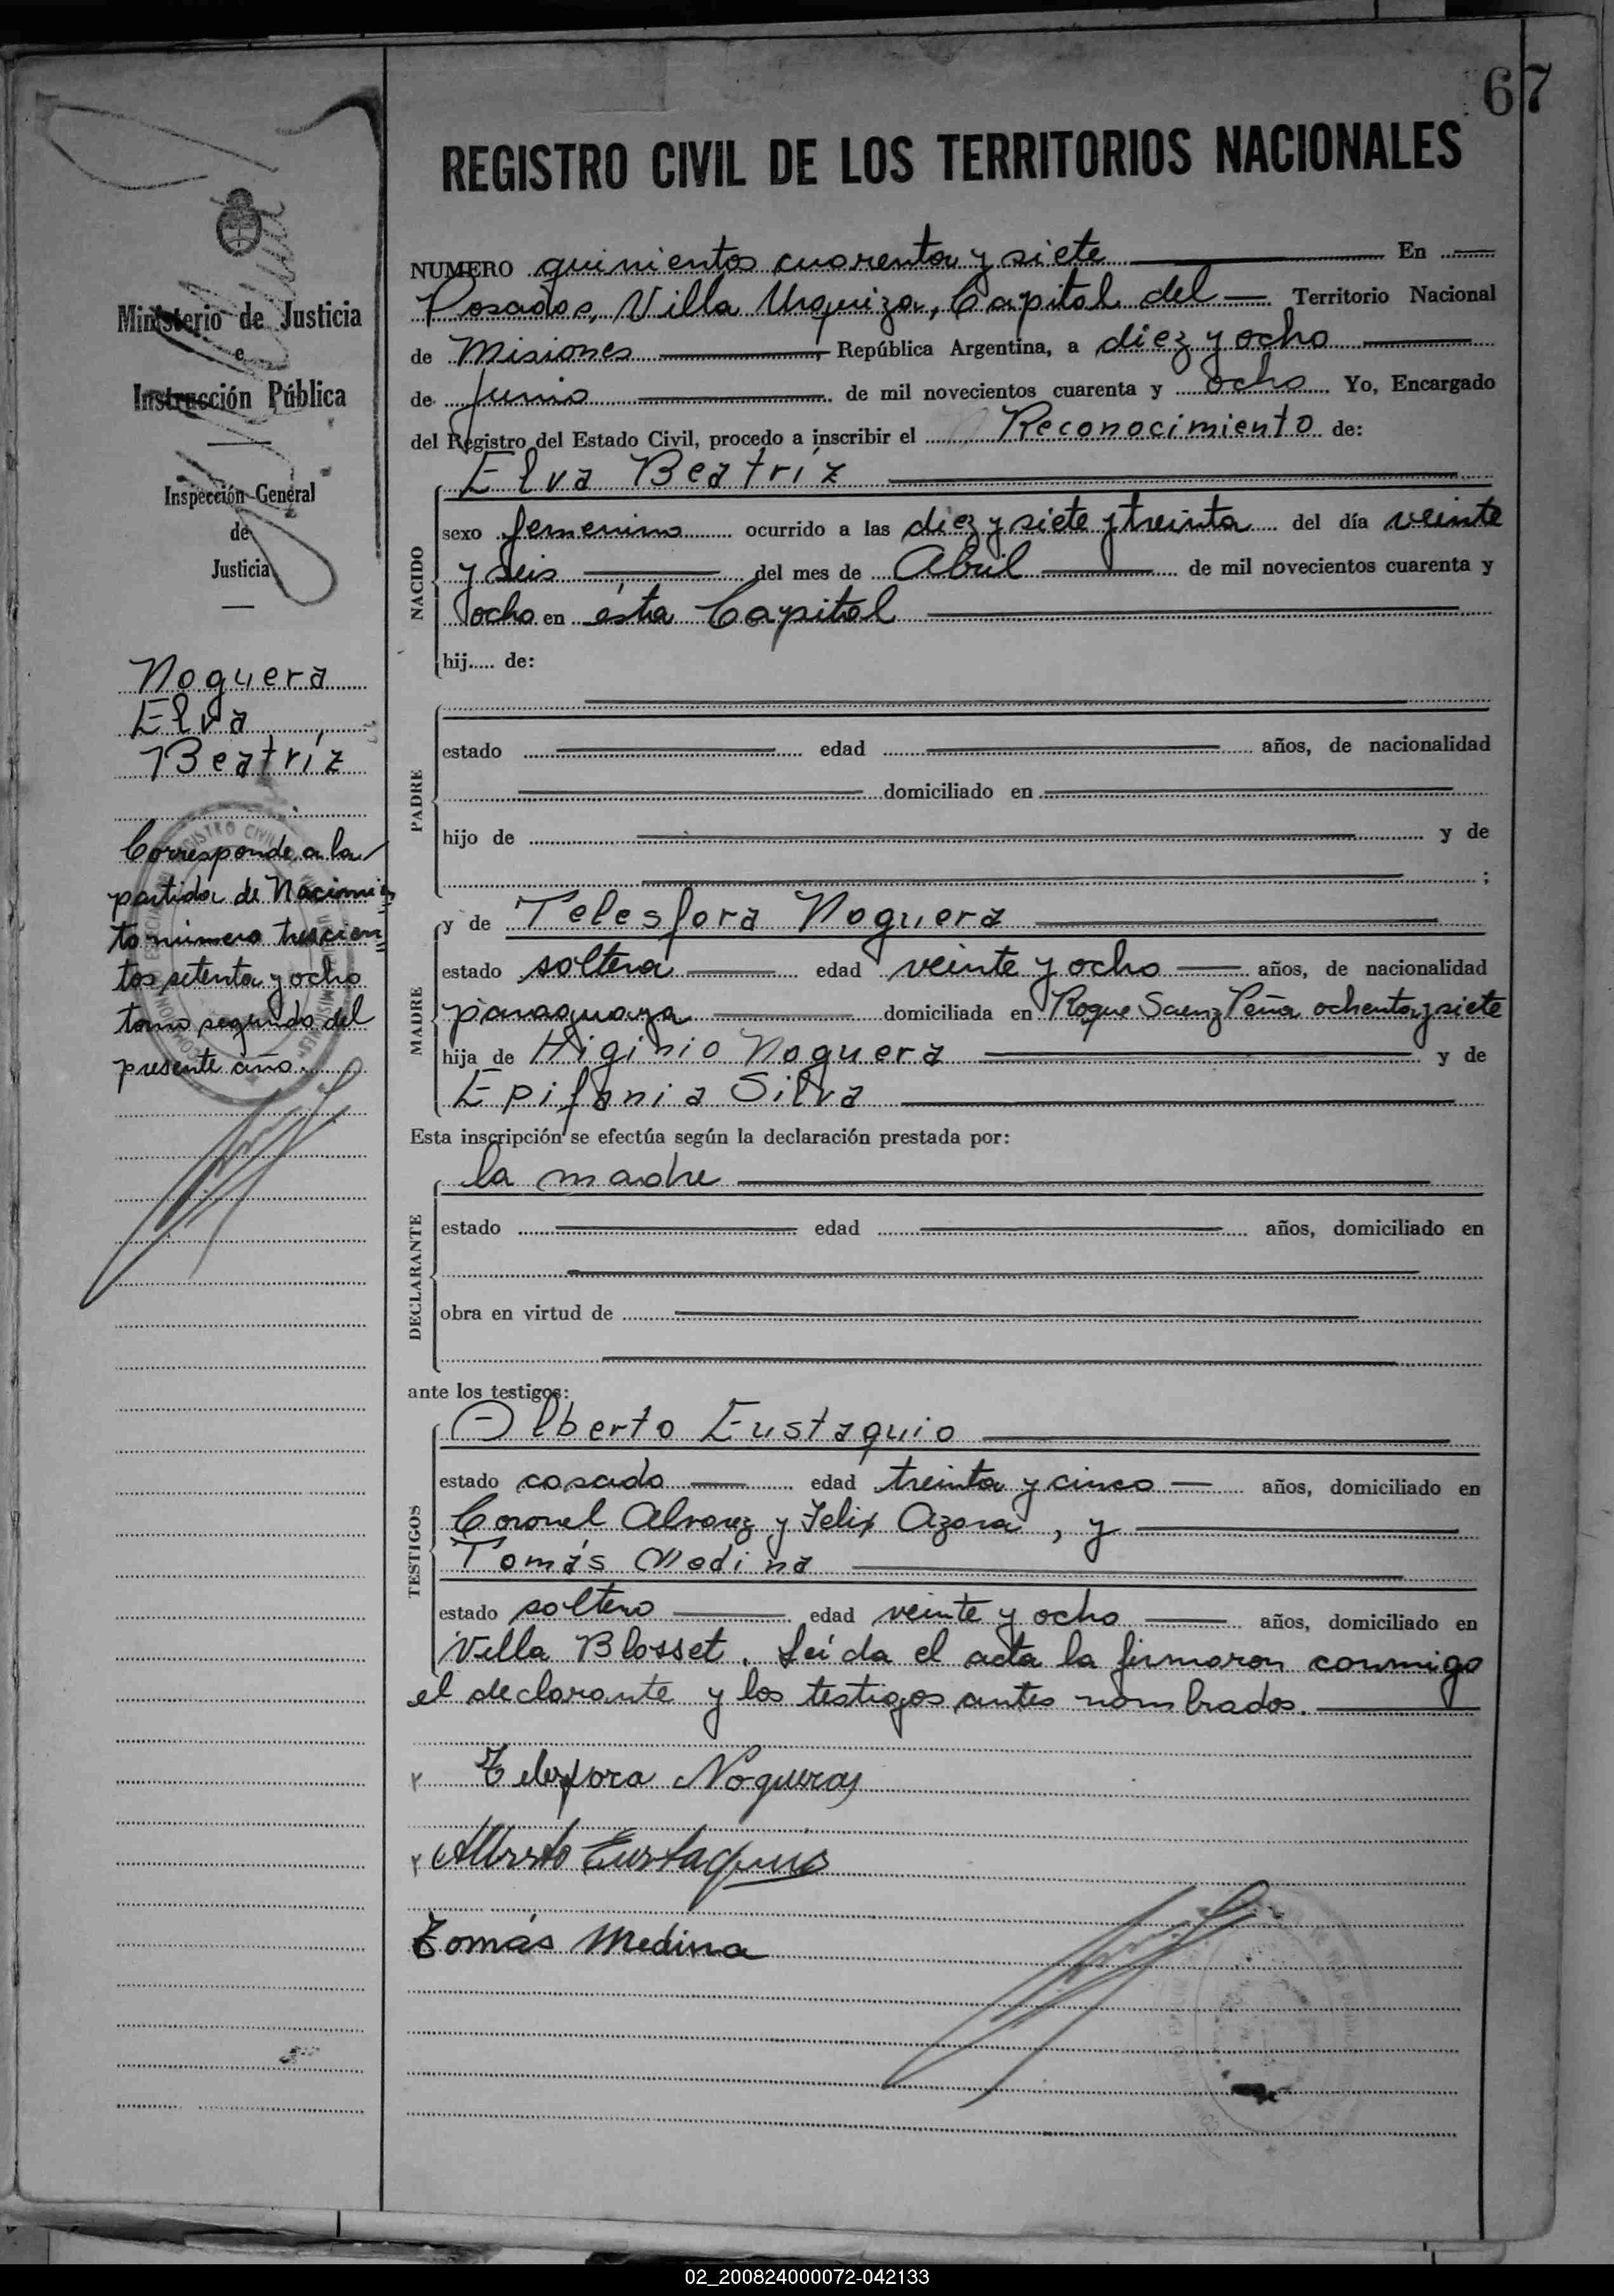 67
REGISTRO CIVIL DE LOS TERRITORIOS NACIONALES
NUMERO quinientos cuarenta y siete En
Posadas, Villa Urquiza, Capital del Territorio Nacional
de Misiones República Argentina, a diez y ocho
de Junio de mil novecientos cuarenta y ocho Yo, Encargado
del Registro del Estado Civil, procedo a inscribir el Reconocimiento de:
Elva Beatríz
NACIDO
sexo femenino ocurrido a las diez y siete y treinta del día veinte
y seis del mes de Abril de mil novecientos cuarenta y
ocho en ésta Capital
hij..... de:
PADRE
estado edad años, de nacionalidad
domiciliado en
hijo de y de
;
MADRE
y de Telesfora Noguera
estado soltera edad veinte y ocho años, de nacionalidad
paraguaya domiciliada en Roque Saenz Peña ochenta y siete
hija de Higinio Noguera y de
Epifania Silva
Esta inscripción se efectúa según la declaración prestada por:
DECLARANTE
la madre
estado edad años, domiciliado en
obra en virtud de
ante los testigos:
TESTIGOS
Alberto Eustaquio
estado casado edad treinta y cinco años, domiciliado en
Coronel Alvarez y Felix Azara, y
Tomás Medina
estado soltero edad veinte y ocho años, domiciliado en
Villa Blosset. Leída el acta la firmaron conmigo
el declarante y los testigos antes nombrados.
Telesfora Noguera
Alberto Eustaquio
Tomás Medina
Ministerio de Justicia
e
Instrucción Pública
Inspección General
de
Justicia
Noguera
Elva
Beatríz
Corresponde a la
partida de Nacimien
to número trescien
tos setenta y ocho
tomo segundo del
presente año.
02_200824000072-042133